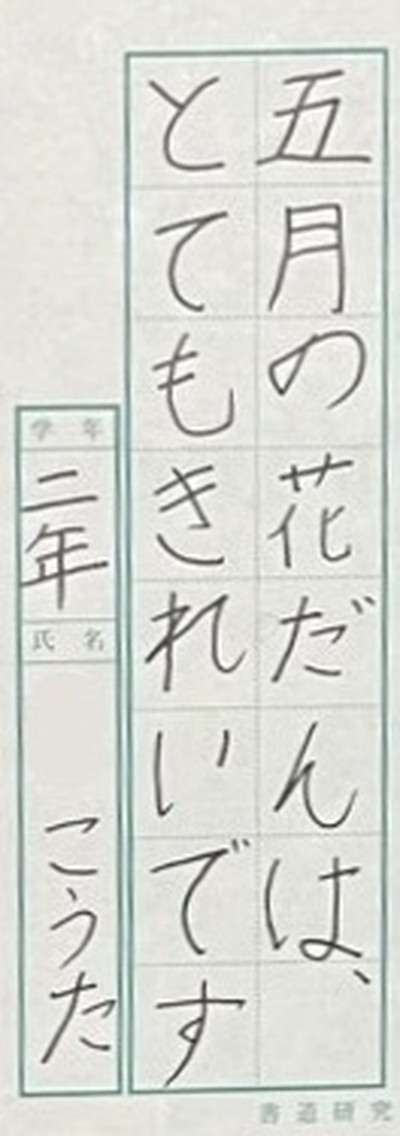 五月の花だんは、
とてもきれいです
学年
二年
氏名
こうた
書道研究